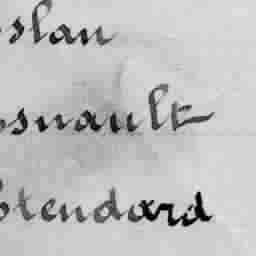 oslan
osnault
Etendard